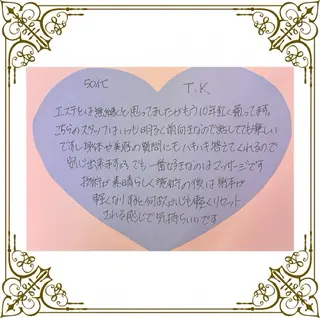 50代 T.K
エステとは無縁と思ってましたがもう10年近く通ってます。
こちらのスタッフはいつも明るく前向きなので話しても楽しい
ですし身体や美容の質問にもハキハキ答えてくれるので
安心出来ます。でも一番好きなのはマッサージです
技術が素晴らしく施術の後は身体が
軽くなり 何故か心も軽くリセット
される感じで気持ちいいです